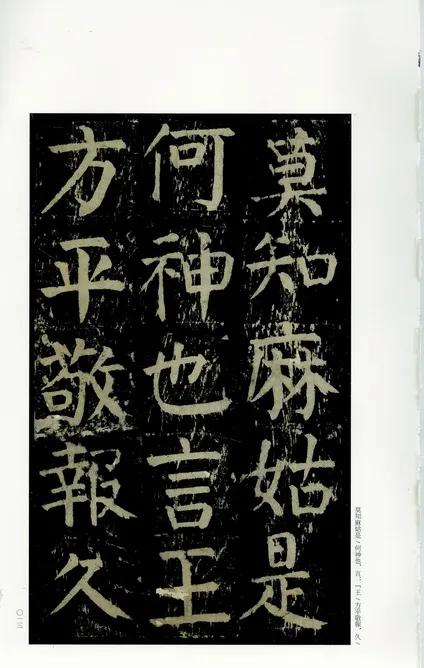 莫知麻姑是
何神也言王
方平敬報久
莫知麻姑是/何神也。言:『王/方平敬報,久/
〇一三